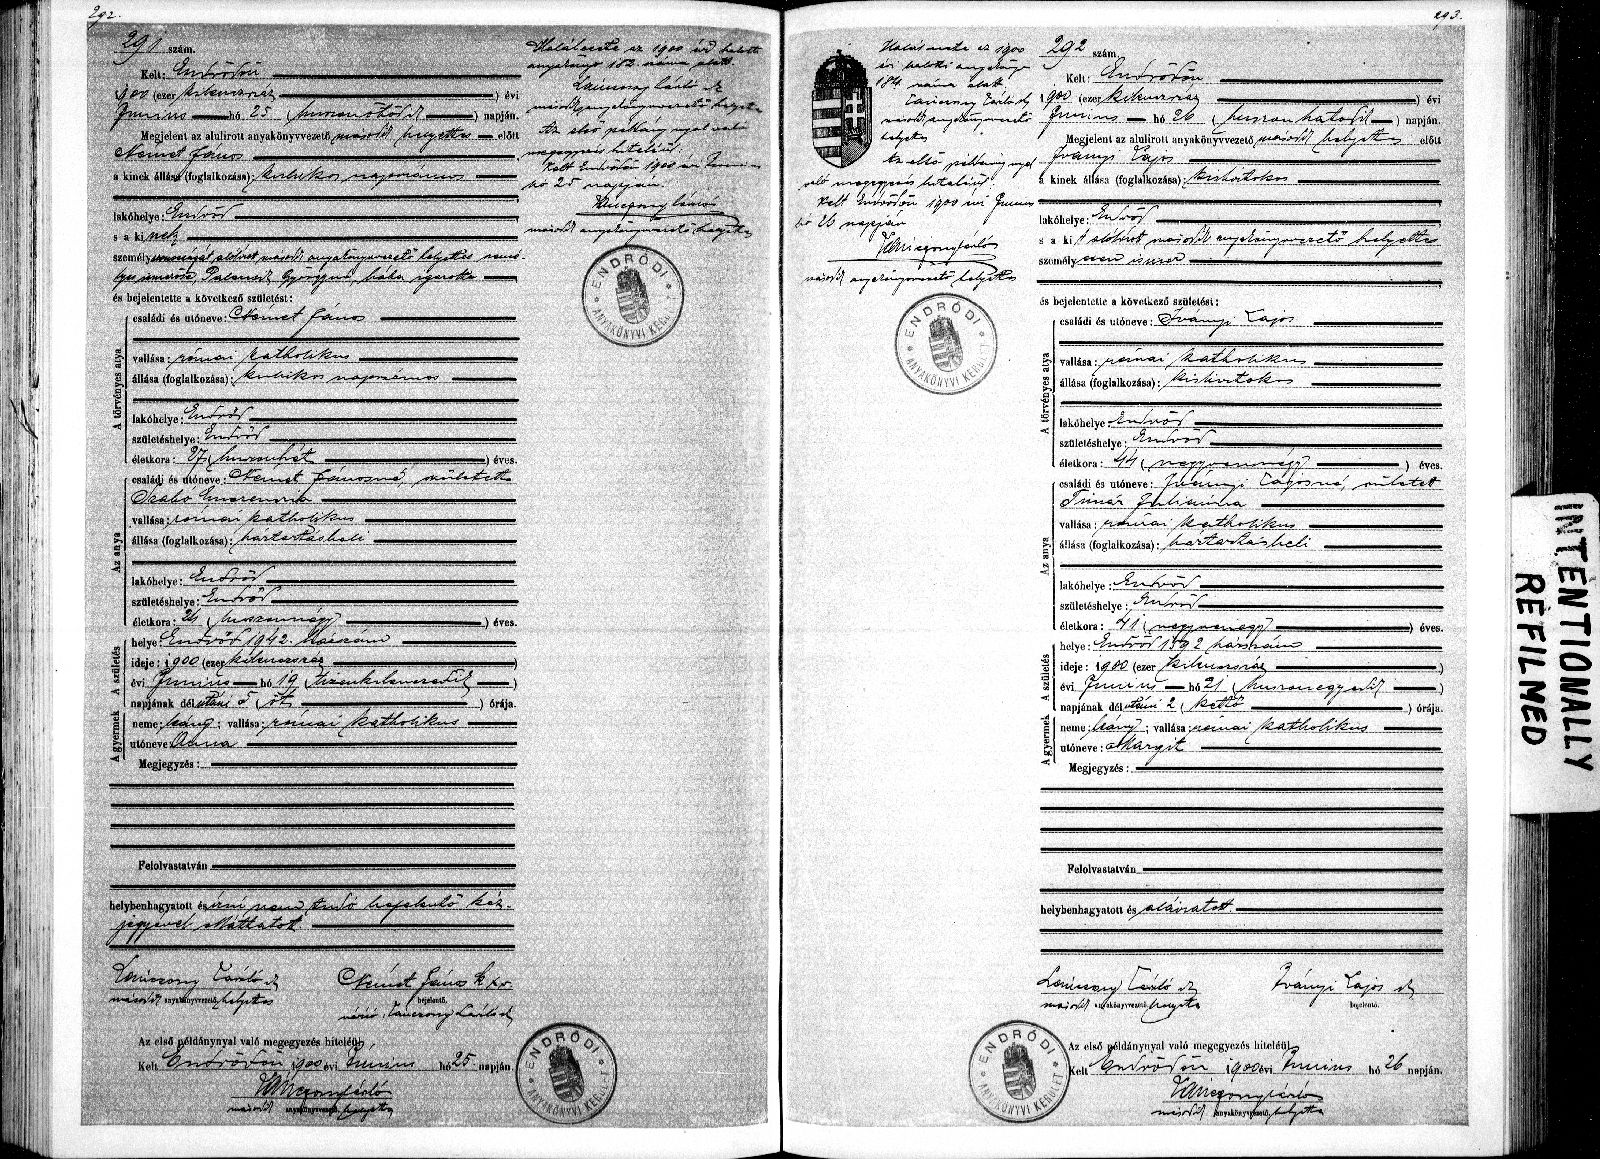 292.
291 szám.
Kelt: Endrődön
1900 (ezer kilenczszáz) évi
Junius hó 25 (huszonötödik) napján.
Megjelent az alulirott anyakönyvvezető második helyettes előtt
Nemet János
a kinek állása (foglalkozása): kubikos napszámos
lakóhelye: Endrőd
s a kinek
személyazonosságát alólirott másodk anyakönyvvezető helyettes
György bába igazolta
és bejelentette a következő születést:
A törvényes atya
családi és utóneve: Nemet János
vallása: római katholikus
állása (foglalkozása): kubikos napszámos
lakóhelye: Endrőd
születéshelye: Endrőd
életkora: 27 (huszonhét) éves.
Az anya
családi és utóneve: Nemet Jánosné, született
Szabó Emerenczia
vallása: római katholikus
állása (foglalkozása): háztartásbeli
lakóhelye: Endrőd
születéshelye: Endrőd
életkora: 24 (huszonnégy) éves.
A születés
helye: Endrőd 1942. házszám
ideje: 1900 (ezer kilenczszáz)
évi Junius hó 19 (tizenkilenczedik)
napjának dél utáni 5 (öt) órája.
A gyermek
neme: leány; vallása: római katholikus
utóneve: Anna
Megjegyzés:
Felolvastatván
helybenhagyatott és irni nem tudó bejelentő kéz-
jegyével elláttatott.
Lánczony László sk Német János k x v
másodk anyakönyvvezető helyettes bejelentő.
Lánczony László sk
Az első példánynyal való megegyezés hiteléül
Kelt Endrődön 1900 évi Junius hó 25 napján.
Lánczony László
másodk anyakönyvvezető helyettes
Halálesete az 1900 évi halotti
anyakönyv 182 száma alatt.
Lánczony László sk
másodk anyakönyvvezető helyettes
Az első példánynyal való
megegyezés hiteléül.
Kelt Endrődön 1900 évi Junius
hó 25 napján.
Lánczony László
másodk anyakönyvvezető helyettes
ENDRŐDI ANYAKÖNYVI KERÜLET
ENDRŐDI ANYAKÖNYVI KERÜLET
293.
Halálesete az 1900
évi halotti anyakönyv
184 száma alatt.
Lánczony László sk
másodk anyakönyvvezető
helyettes
Az első példánynyal
való megegyezés hiteléül.
Kelt Endrődön 1900 évi Junius
hó 26 napján
Lánczony László
másodk anyakönyvvezető helyettes
ENDRŐDI ANYAKÖNYVI KERÜLET
292 szám
Kelt: Endrődön
1900 (ezer kilenczszáz) évi
Junius hó 26 (huszonhatodik) napján.
Megjelent az alulirott anyakönyvvezető másodk helyettes előtt
Iványi Lajos
a kinek állása (foglalkozása): kisbirtokos
lakóhelye: Endrőd
s a kit alólirott másodk anyakönyvvezető helyettes
személyesen ismer
és bejelentette a következő születést:
A törvényes atya
családi és utóneve: Iványi Lajos
vallása: római katholikus
állása (foglalkozása): kisbirtokos
lakóhelye Endrőd
születéshelye: Endrőd
életkora: 44 (negyvennégy) éves.
Az anya
családi és utóneve: Iványi Lajosné, született
Timár Julianna
vallása: római katholikus
állása (foglalkozása): háztartásbeli
lakóhelye: Endrőd
születéshelye: Endrőd
életkora: 41 (negyvenegy) éves.
A születés
helye: Endrőd 1592 házszám
ideje: 1900 (ezer kilenczszáz)
évi Junius hó 21 (huszonegyedik)
napjának dél utáni 2 (kettő) órája.
A gyermek
neme: leány; vallása: római katholikus
utóneve: Margit
Megjegyzés:
Felolvastatván
helybenhagyatott és aláiratott.
Lánczony László sk Iványi Lajos sk
másodk anyakönyvvezető helyettes bejelentő.
Az első példánynyal való megegyezés hiteléül
Kelt Endrődön 1900 évi Junius hó 26 napján.
Lánczony László
másodk anyakönyvvezető helyettes
ENDRŐDI ANYAKÖNYVI KERÜLET
INTENTIONALLY
REFILMED